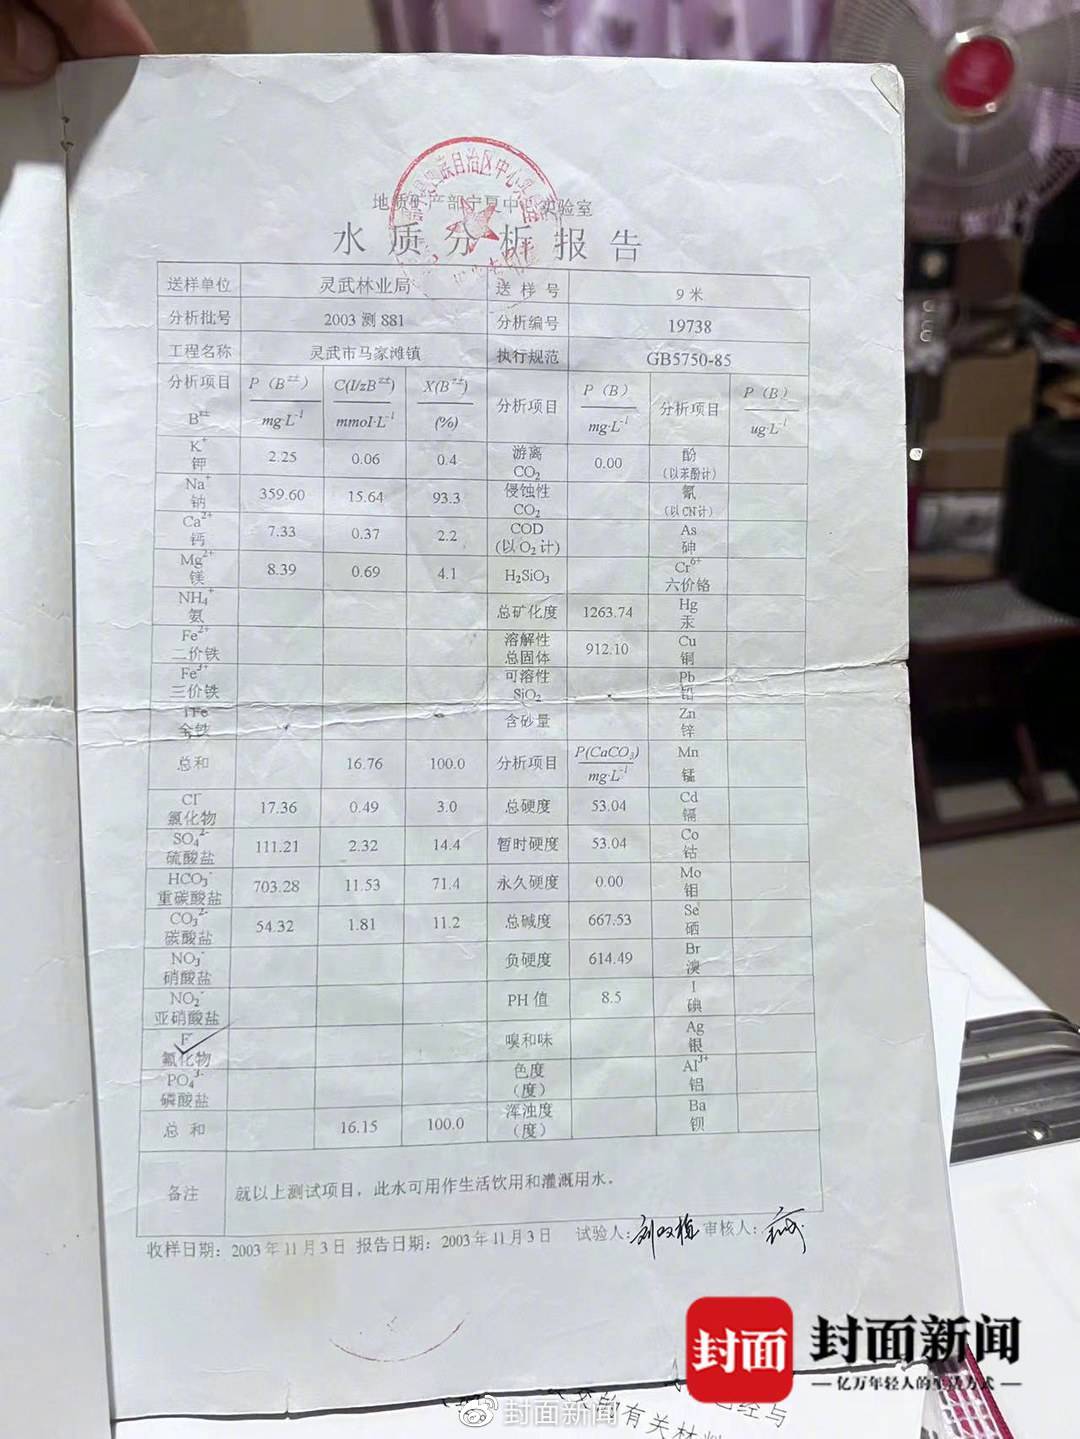 地质矿产部宁夏中心实验室
水质分析报告
送样单位 灵武林业局 送样号 9米
分析批号 2003测881 分析编号 19738
工程名称 灵武市马家滩镇 执行规范 GB5750-85
分析项目 B^z± P（B^z±） mg·L⁻¹ C(1/zB^z±) mmol·L⁻¹ X(B^z±) (%) 分析项目 P（B） mg·L⁻¹ 分析项目 P（B） ug·L⁻¹
K⁺ 钾 2.25 0.06 0.4 游离CO₂ 0.00 酚（以苯酚计）
Na⁺ 钠 359.60 15.64 93.3 侵蚀性CO₂ 氰（以CN计）
Ca²⁺ 钙 7.33 0.37 2.2 COD(以O₂计) As 砷
Mg²⁺ 镁 8.39 0.69 4.1 H₂SiO₃ Cr⁶⁺ 六价铬
NH₄⁺ 氨 总矿化度 1263.74 Hg 汞
Fe²⁺ 二价铁 溶解性总固体 912.10 Cu 铜
Fe³⁺ 三价铁 可溶性SiO₂ Pb 铅
TFe 全铁 含砂量 Zn 锌
总和 16.76 100.0 分析项目 P(CaCO₃) mg·L⁻¹ Mn 锰
Cl⁻ 氯化物 17.36 0.49 3.0 总硬度 53.04 Cd 镉
SO₄²⁻ 硫酸盐 111.21 2.32 14.4 暂时硬度 53.04 Co 钴
HCO₃⁻ 重碳酸盐 703.28 11.53 71.4 永久硬度 0.00 Mo 钼
CO₃²⁻ 碳酸盐 54.32 1.81 11.2 总碱度 667.53 Se 硒
NO₃⁻ 硝酸盐 负硬度 614.49 Br 溴
NO₂⁻ 亚硝酸盐 PH值 8.5 I 碘
F⁻ 氟化物 嗅和味 Ag 银
PO₄³⁻ 磷酸盐 色度（度） Al³⁺ 铝
总和 16.15 100.0 浑浊度（度） Ba 钡
备注 就以上测试项目，此水可用作生活饮用和灌溉用水。
收样日期：2003年11月3日 报告日期：2003年11月3日 试验人： 审核人：
封面 封面新闻
亿万年轻人的生活方式
封面新闻
的有关材料